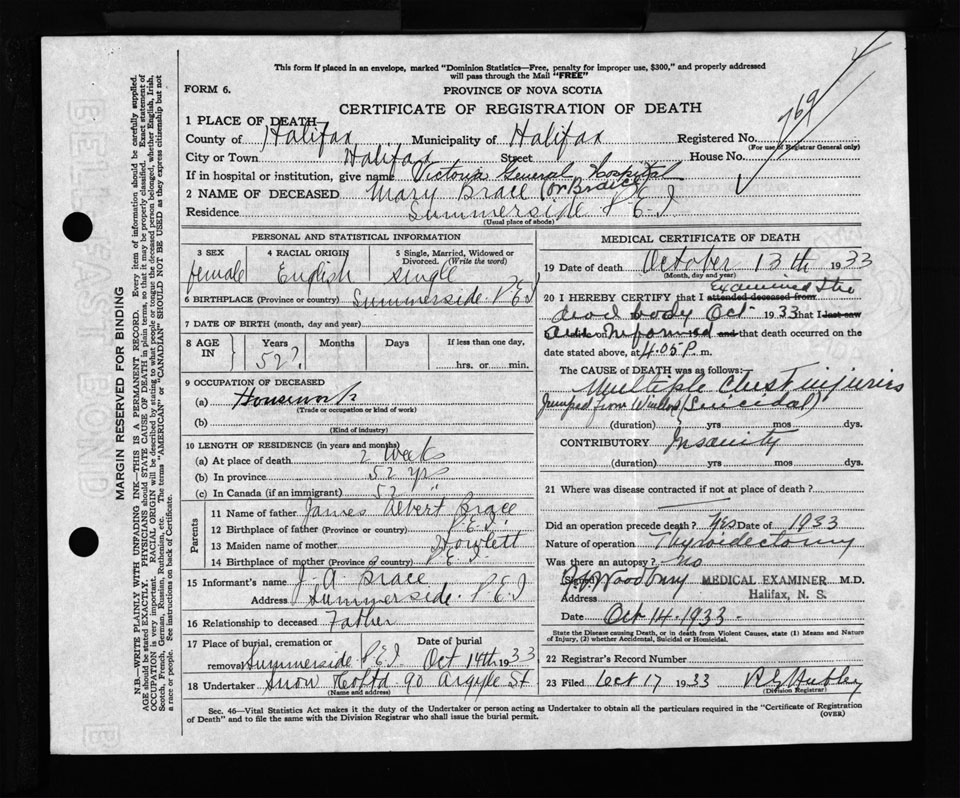 This form if placed in an envelope, marked "Dominion Statistics—Free, penalty for improper use, $300," and properly addressed
will pass through the Mail "FREE"
FORM 6.
PROVINCE OF NOVA SCOTIA
CERTIFICATE OF REGISTRATION OF DEATH
769
1 PLACE OF DEATH
County of Halifax Municipality of Halifax Registered No.
(For use of Registrar General only)
City or Town Halifax Street House No.
If in hospital or institution, give name Victoria General Hospital
2 NAME OF DECEASED Mary Brace (or Brace)
Residence Summerside P.E.I
(Usual place of abode)
PERSONAL AND STATISTICAL INFORMATION
3 SEX 4 RACIAL ORIGIN 5 Single, Married, Widowed or
Divorced. (Write the word)
female English single
6 BIRTHPLACE (Province or country) Summerside P.E.I
7 DATE OF BIRTH (month, day and year)
8 AGE IN Years Months Days If less than one day,
52? hrs. or min.
9 OCCUPATION OF DECEASED
(a) Housework
(Trade or occupation or kind of work)
(b)
(Kind of industry)
10 LENGTH OF RESIDENCE (in years and months)
(a) At place of death 2 Weeks
(b) In province 52 yrs
(c) In Canada (if an immigrant) 52 "
Parents
11 Name of father James Albert Brace
12 Birthplace of father (Province or country) P.E.I.
13 Maiden name of mother Howlett
14 Birthplace of mother (Province or country) P.E.I
15 Informant's name J. A Brace
Address Summerside. P.E.I
16 Relationship to deceased Father
17 Place of burial, cremation or Date of burial
removal Summerside P.E.I. Oct 14th 1933
18 Undertaker Snow & Co Ltd 90 Argyle St
(Name and address)
MEDICAL CERTIFICATE OF DEATH
19 Date of death October 13th 1933
(Month, day and year)
20 I HEREBY CERTIFY that I attended deceased from Examined the
dead body Oct 1933 that I last saw
alive on Informed and that death occurred on the
date stated above, at 4.05 P. m.
The CAUSE OF DEATH was as follows:
Multiple Chest injuries
Jumped from Window (Suicidal)
(duration) yrs mos dys.
CONTRIBUTORY Insanity
(duration) yrs mos dys.
21 Where was disease contracted if not at place of death?
Did an operation precede death? Yes Date of 1933
Nature of operation Thyroidectomy
Was there an autopsy? No
Signed Woodbury MEDICAL EXAMINER M.D.
Address Halifax, N. S.
Date Oct 14. 1933.
State the Disease Causing Death, or in death from Violent Causes, state (1) Means and Nature
of Injury, (2) whether Accidental, Suicidal or Homicidal.
22 Registrar's Record Number
23 Filed Oct 17 1933 Hubley
(Division Registrar)
Sec. 46—Vital Statistics Act makes it the duty of the Undertaker or person acting as Undertaker to obtain all the particulars required in the "Certificate of Registration
of Death" and to file the same with the Division Registrar who shall issue the burial permit.
(OVER)
MARGIN RESERVED FOR BINDING
N.B.—WRITE PLAINLY WITH UNFADING INK—THIS IS A PERMANENT RECORD. Every item of information should be carefully supplied.
AGE should be stated EXACTLY. PHYSICIANS should state CAUSE OF DEATH in plain terms, so that it may be properly classified. Exact statement of
OCCUPATION is very important. RACIAL ORIGIN will be described by stating to what people or tongue the deceased person belonged, whether English, Irish,
Scotch, French, German, Russian, Ruthenian, etc. The terms "AMERICAN" or "CANADIAN" SHOULD NOT BE USED as they express citizenship but not
a race or people. See instructions on back of Certificate.